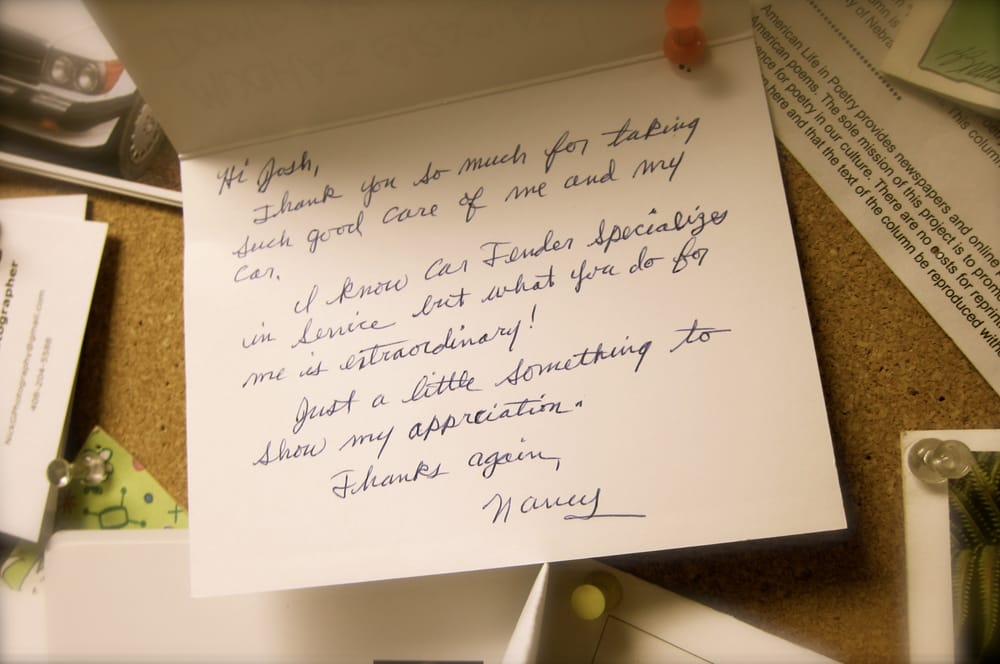 Hi Josh,
Thank you so much for taking
such good care of me and my
car.
I know Car Fender Specializes
in Service but what you do for
me is extraordinary!
Just a little something to
show my appreciation.
Thanks again,
Nancy
tographer
408-204-5588
American Life in Poetry provides newspapers and online
American poems. The sole mission of this project is to prom
ence for poetry in our culture. There are no costs for reprin
here and that the text of the column be reproduced with
This column
umn is
y of Nebra